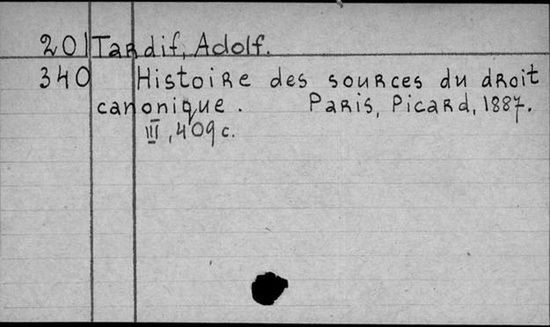 201 Tardif, Adolf.
340 Histoire des sources du droit
canonique. Paris, Picard, 1887.
III, 409 c.